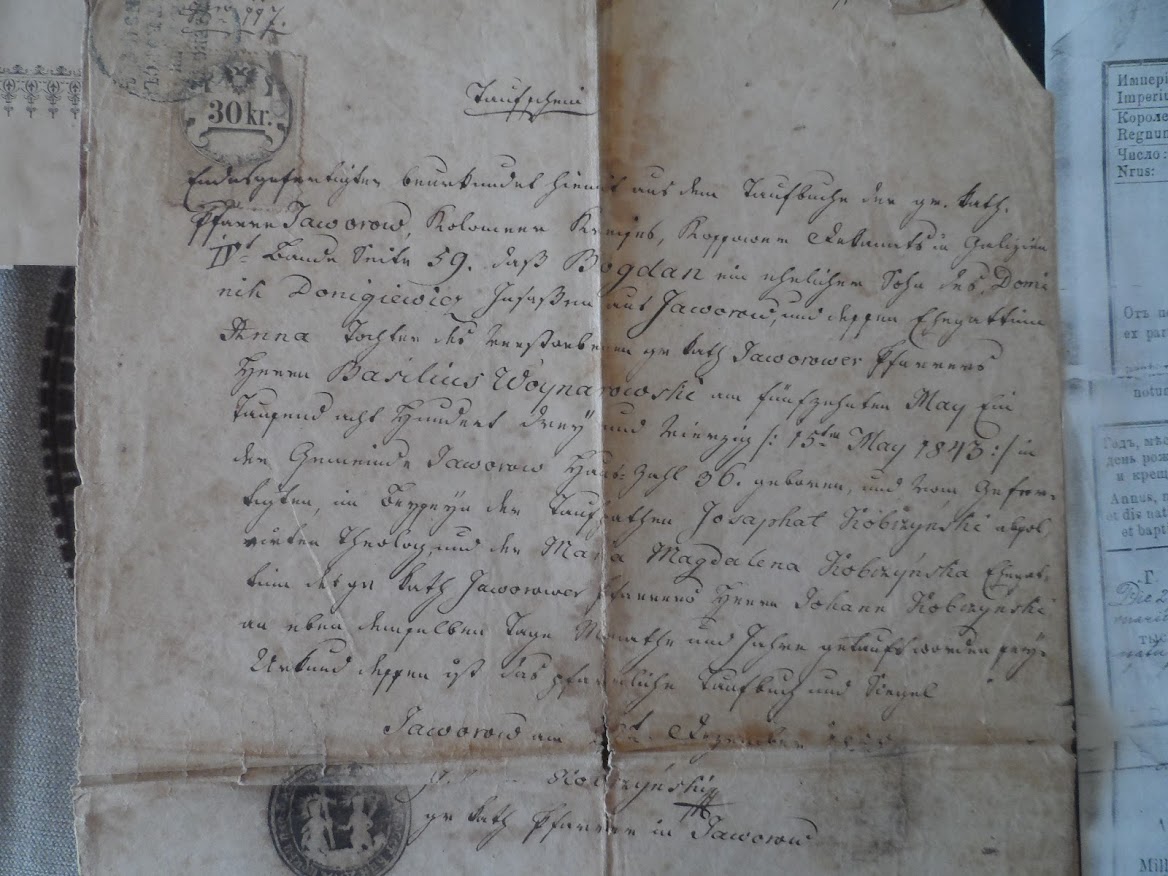 997.
30 kr.
Taufschein
Endesgefertigter beurkundet hiemit aus dem Taufbuche der gr. kath.
Pfarre Jaworow, Kolomeer Kreises, Kossower Dekanats in Galizien
IVt Bande Seite 59. daß Bogdan ein ehelicher Sohn des Domi
nik Donigiewicz Insaßen aus Jaworow, und dessen Ehegattinn
Anna Tochter des verstorbenen gr kath Jaworower Pfarrers
Herrn Basilius Woynarowski am fünfzehnten May Ein
Tausend acht Hundert drey und vierzig /: 15ten May 1843 :/ in
der Gemeinde Jaworow Haus-Zahl 36. geboren, und vom Gefer-
tigten, im Beyseyn der Taufpathen Josaphat Kobrzyński absol
virten Theolog, und der Maria Magdalena Kobrzyńska Ehegat-
tin des gr kath Jaworower Pfarrers Herrn Johann Kobrzyński
an eben demselben Tage Monathe und Jahre getauft worden sey.
Urkund dessen ist das pfarrliche Taufbuch und Siegel
Jaworow am Dezember
Kobrzyński
gr kath Pfarrer in Jaworow
Импері
Imperiu
Короле
Regnum
Число:
Nrus:
Отъ
ex par
notu
Годъ, мѣс
день рож
и крещ
Annus, m
et dis nat
et bapt
Mill